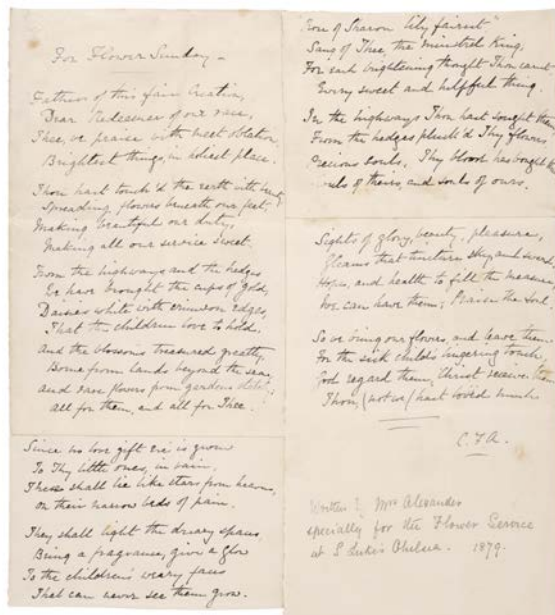 For Flower Sunday -
Father of this fair Creation,
Dear Redeemer of our race,
Thee, we praise with meet oblation,
Brightest things, in holiest place.
Thou hast touch'd the earth with beauty
Spreading flowers beneath our feet,
Making beautiful our duty,
Making all our service sweet.
From the highways and the hedges
We have brought the cups of gold,
Daisies white with crimson edges,
That the children love to hold.
And the blossoms treasured greatly,
Borne from lands beyond the sea,
And rare flowers from gardens stately
All for them, and all for Thee.
Since no love gift e'er is given
To Thy little ones, in vain,
These shall lie like stars from heaven,
On their narrow beds of pain.
They shall light the dreary spaces,
Bring a fragrance, give a glow
To the children's weary faces
That can never see them grow.
Rose of Sharon lily fairest"
Sang of Thee, the minstrel King,
For each brightening thought Thou carest
Every sweet and helpful thing.
In the highways Thou hast sought them
From the hedges pluck'd Thy flowers,
Precious souls, Thy blood has bought
souls of theirs, and souls of ours.
Sights of glory, beauty, pleasure,
Gleams that tincture sky and sward,
Hope, and health to fill the measure,
We can have them; Praise the Lord.
So we bring our flowers, and leave them
For the sick child's lingering touch,
God regard them, Christ receive them
Thou, (not we) hast loved much.
C.F.A.
Written by Mrs Alexander
specially for the Flower Service
at S. Luke's Chelsea. 1879.